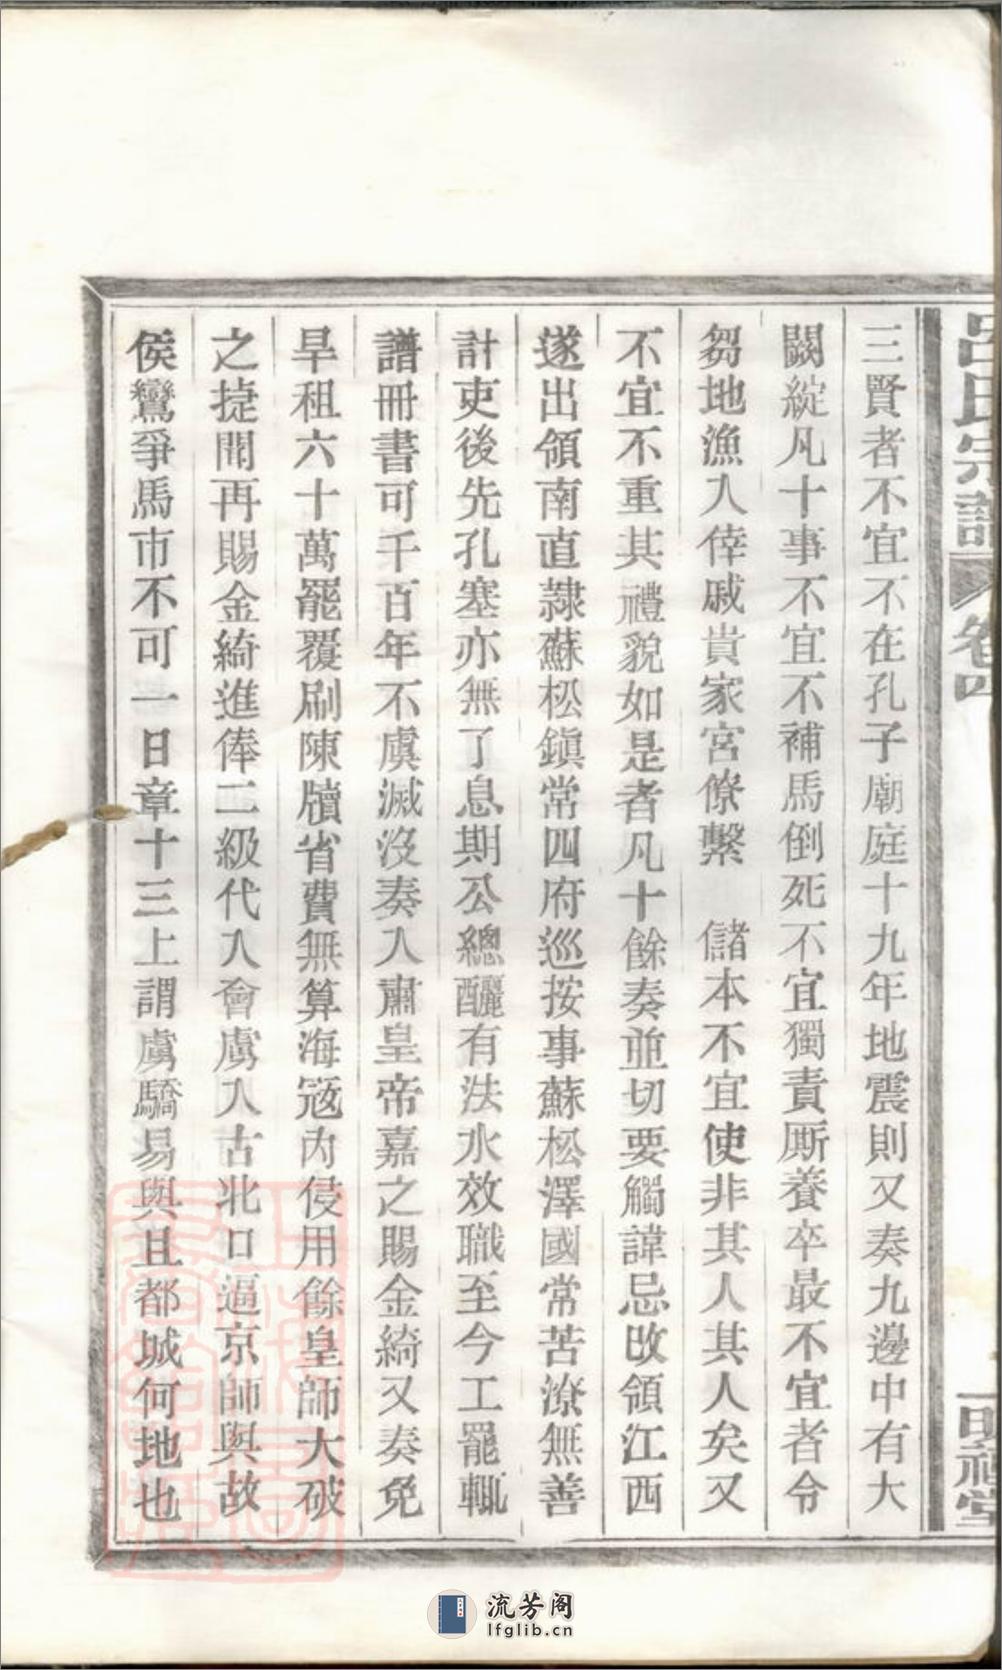 呂氏宗譜 卷四
三賢者不宜不在孔子廟庭十九年地震則又奏九邊中有大
闕綻凡十事不宜不補馬倒死不宜獨責厮養卒最不宜者令
芻地漁入倖戚貴家宮僚繫 儲本不宜使非其人其人矣又
不宜不重其禮貌如是者凡十餘奏並切要觸諱忌改領江西
遂出領南直隸蘇松鎭常四府巡按事蘇松澤國常苦潦無善
計吏後先孔塞亦無了息期公總釃有法水效職至今工罷輒
譜冊書可千百年不虞滅沒奏入肅皇帝嘉之賜金綺又奏免
旱租六十萬罷覆刷陳牘省費無算海冦內侵用餘皇師大破
之捷聞再賜金綺進俸二級代入會虜入古北口逼京師與故
侯鸞爭馬市不可一日章十三上謂虜驕易與且都城何地也
明禋堂
流芳阁
lfglib.cn